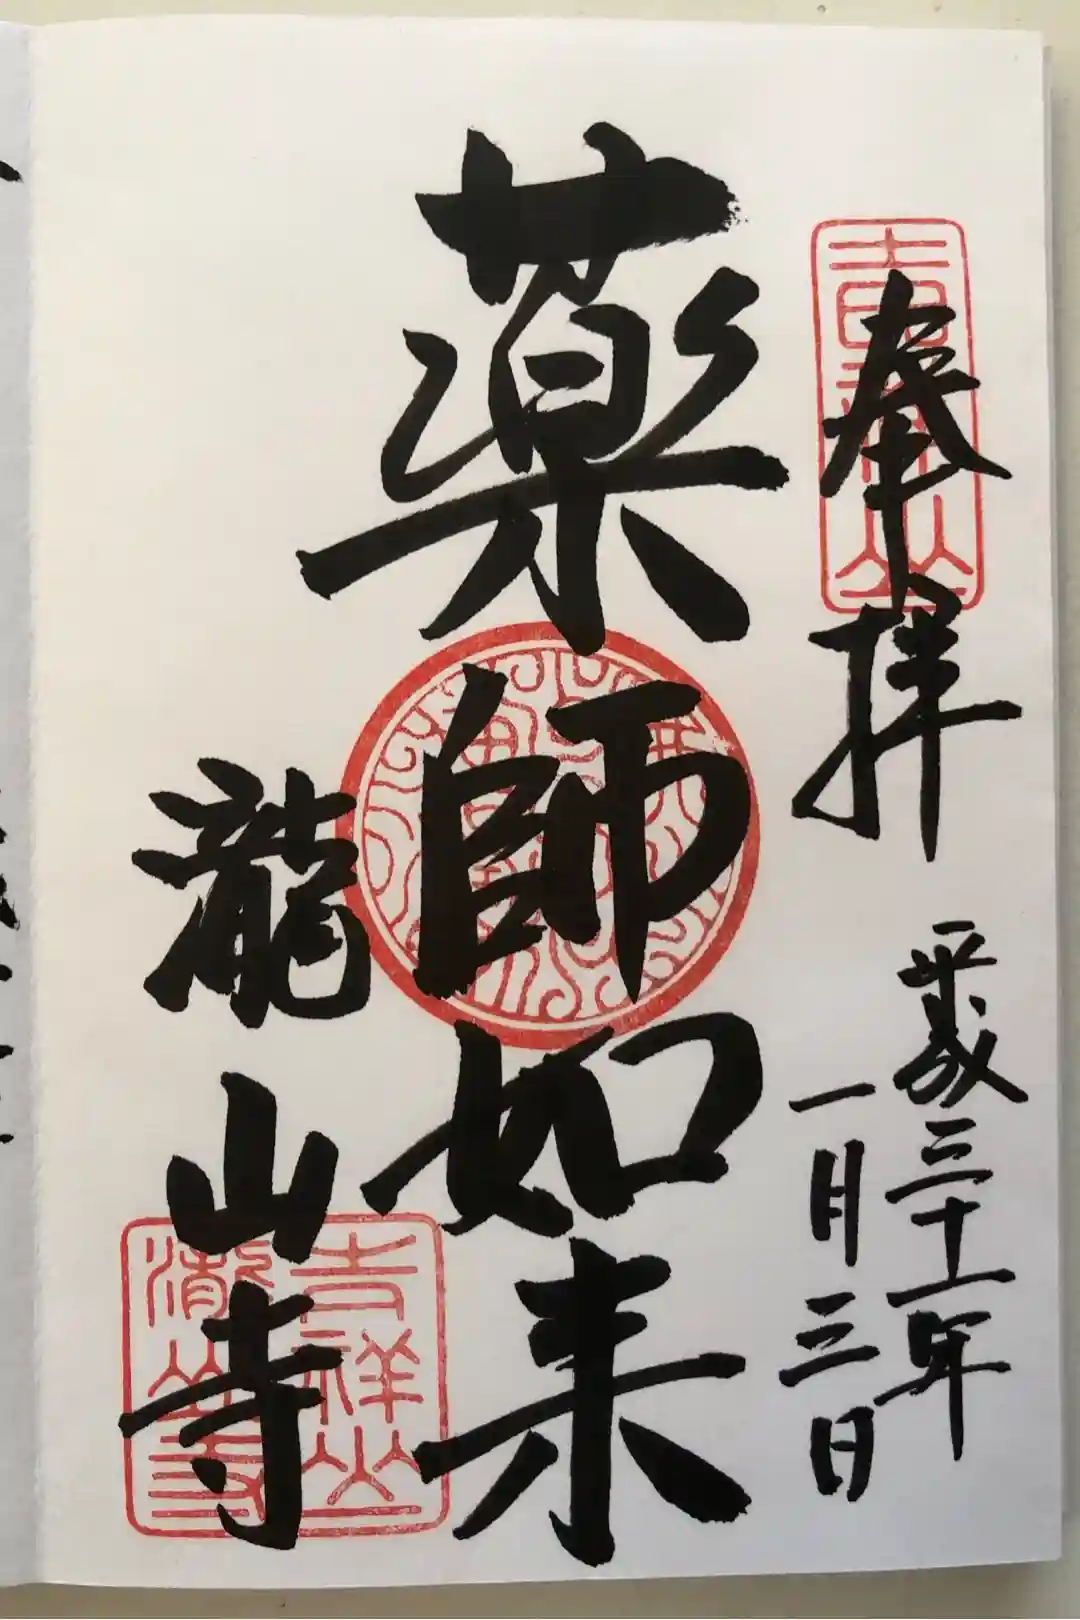 奉拝
平成三十一年
一月三日
薬師如来
瀧山寺
吉祥山
吉祥山
瀧山寺